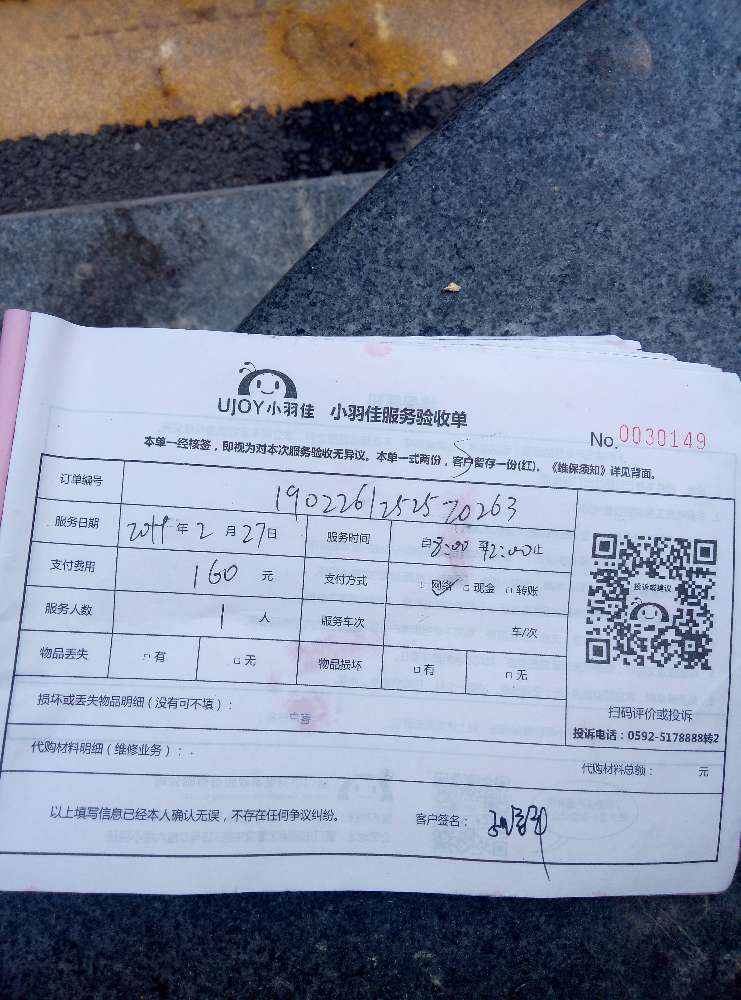 UJOY小羽佳 小羽佳服务验收单
No. 0030149
本单一经核签，即视为对本次服务验收无异议。本单一式两份，客户留存一份(红)。《维保须知》详见背面。
订单编号 1902261252570263
服务日期 2019年2月27日 服务时间 自8:00至12:00止
支付费用 160元 支付方式 网络 现金 转账
服务人数 1人 服务车次 车/次
物品丢失 有 无 物品损坏 有 无
投诉或建议
扫码评价或投诉
投诉电话：0592-5178888转2
损坏或丢失物品明细（没有可不填）：
代购材料明细（维修业务）：
代购材料总额： 元
以上填写信息已经本人确认无误，不存在任何争议纠纷。 客户签名：